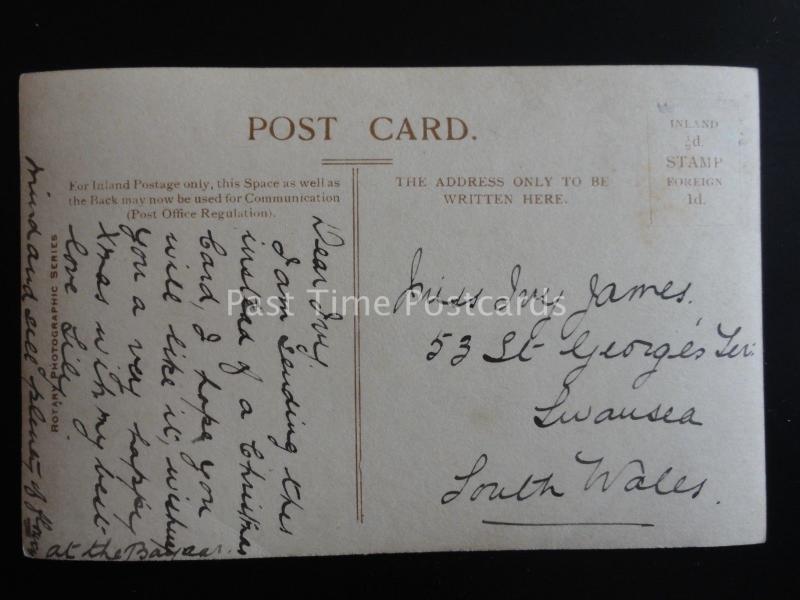 POST CARD.
For Inland Postage only, this Space as well as
the Back may now be used for Communication
(Post Office Regulation).
THE ADDRESS ONLY TO BE
WRITTEN HERE.
INLAND
½d.
STAMP
FOREIGN
1d.
ROTARY PHOTOGRAPHIC SERIES
Dear Ivy.
I am sending this
instead of a Christmas
Card, I hope you
will like it, wishing
you a very happy
Xmas with my best
love Lily.
mind and sell plenty of
at the Bazaar.
Miss Ivy James,
53 St George's Ter:
Swansea
South Wales.
Past Time Postcards